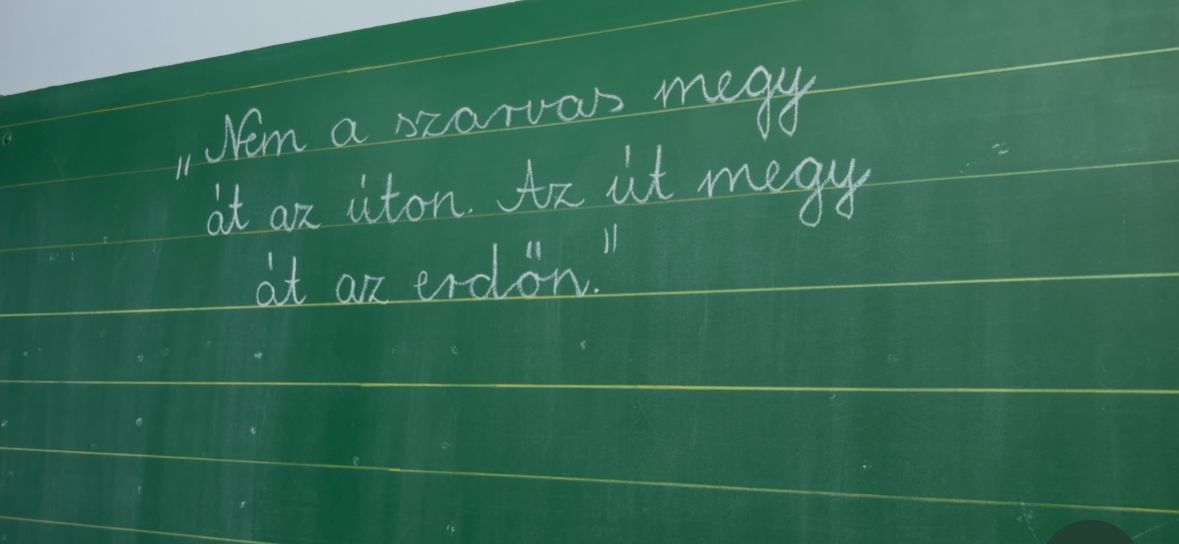 „Nem a szarvas megy
át az úton. Az út megy
át az erdőn."